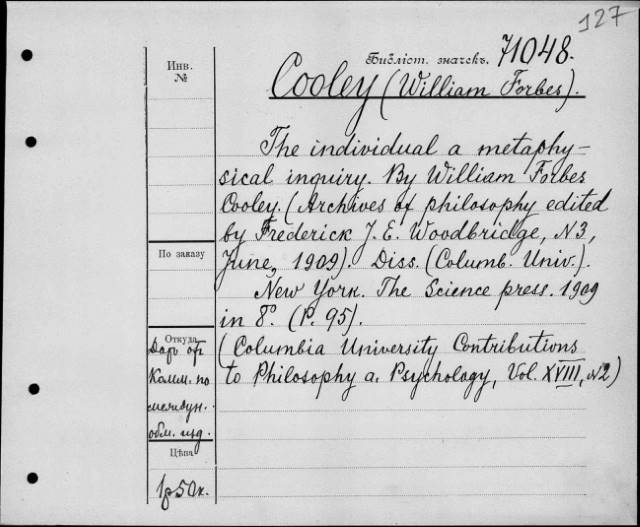 127
Библіот. значекъ. 71048.
Инв. №
Cooley (William Forbes).
The individual a metaphy-
sical inquiry. By William Forbes
Cooley. (Archives of philosophy edited
by Frederick J. E. Woodbridge, N3,
June, 1909). Diss. (Columb. Univ.).
New York. The Science press. 1909
in 8º. (P. 95).
(Columbia University Contributions
to Philosophy a. Psychology, Vol. XVIII, N2)
По заказу
Откуда
Даръ от
Комм. по
междун.
обм. изд.
Цѣна
1р 50к.